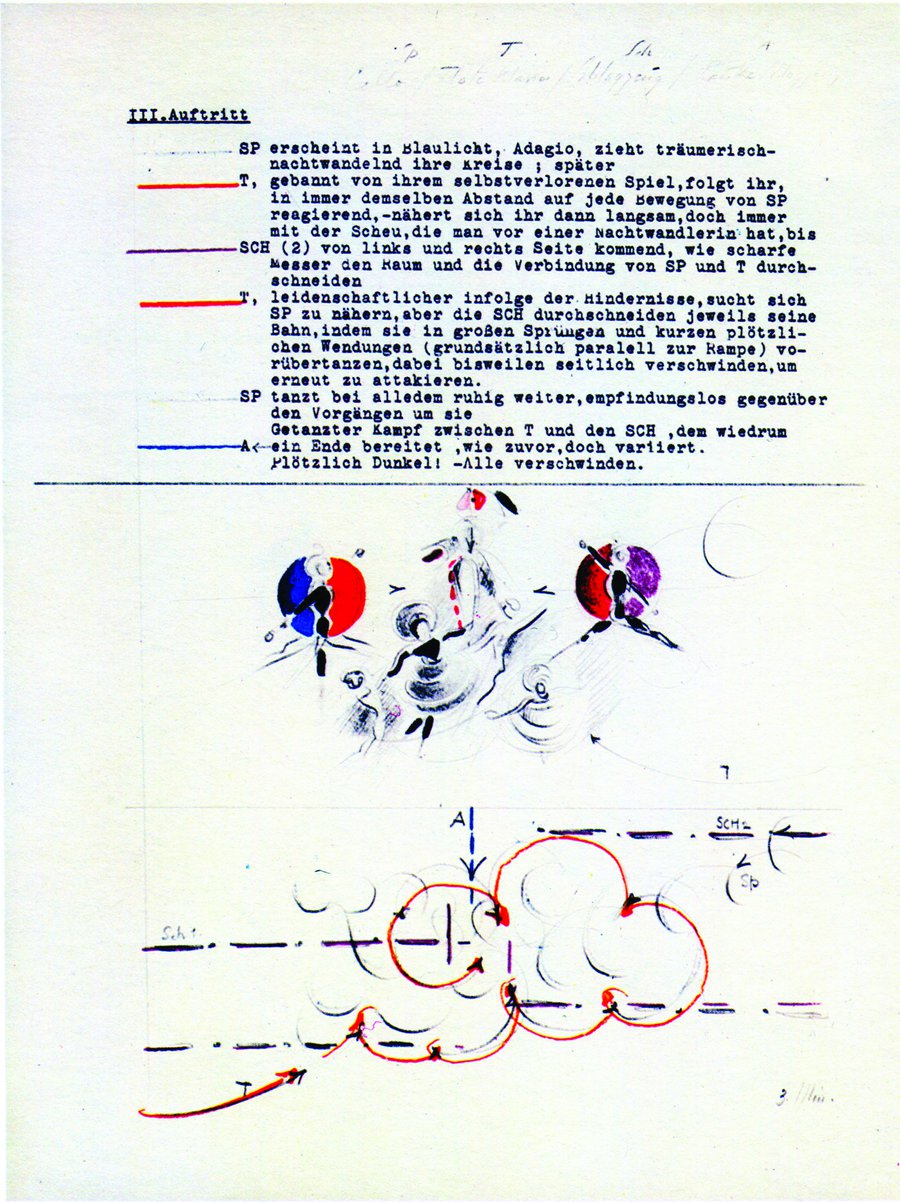 P T Sch A
III.Auftritt
SP erscheint in Blaulicht, Adagio, zieht träumerisch-
nachtwandelnd ihre Kreise ; später
T, gebannt von ihrem selbstverlorenen Spiel,folgt ihr,
in immer demselben Abstand auf jede Bewegung von SP
reagierend,-nähert sich ihr dann langsam,doch immer
mit der Scheu,die man vor einer Nachtwandlerin hat,bis
SCH (2) von links und rechts Seite kommend, wie scharfe
Messer den Raum und die Verbindung von SP und T durch-
schneiden
T, leidenschaftlicher infolge der Hindernisse,sucht sich
SP zu nähern,aber die SCH durchschneiden jeweils seine
Bahn,indem sie in großen Sprüngen und kurzen plötzli-
chen Wendungen (grundsätzlich paralell zur Rampe) vo-
rübertanzen,dabei bisweilen seitlich verschwinden,um
erneut zu attakieren.
SP tanzt bei alledem ruhig weiter,empfindungslos gegenüber
den Vorgängen um sie
Getanzter Kampf zwischen T und den SCH ,dem wiedrum
A← ein Ende bereitet ,wie zuvor,doch variiert.
Plötzlich Dunkel! -Alle verschwinden.
T
A
SCH2
Sp
Sch 1
T
3. Min.